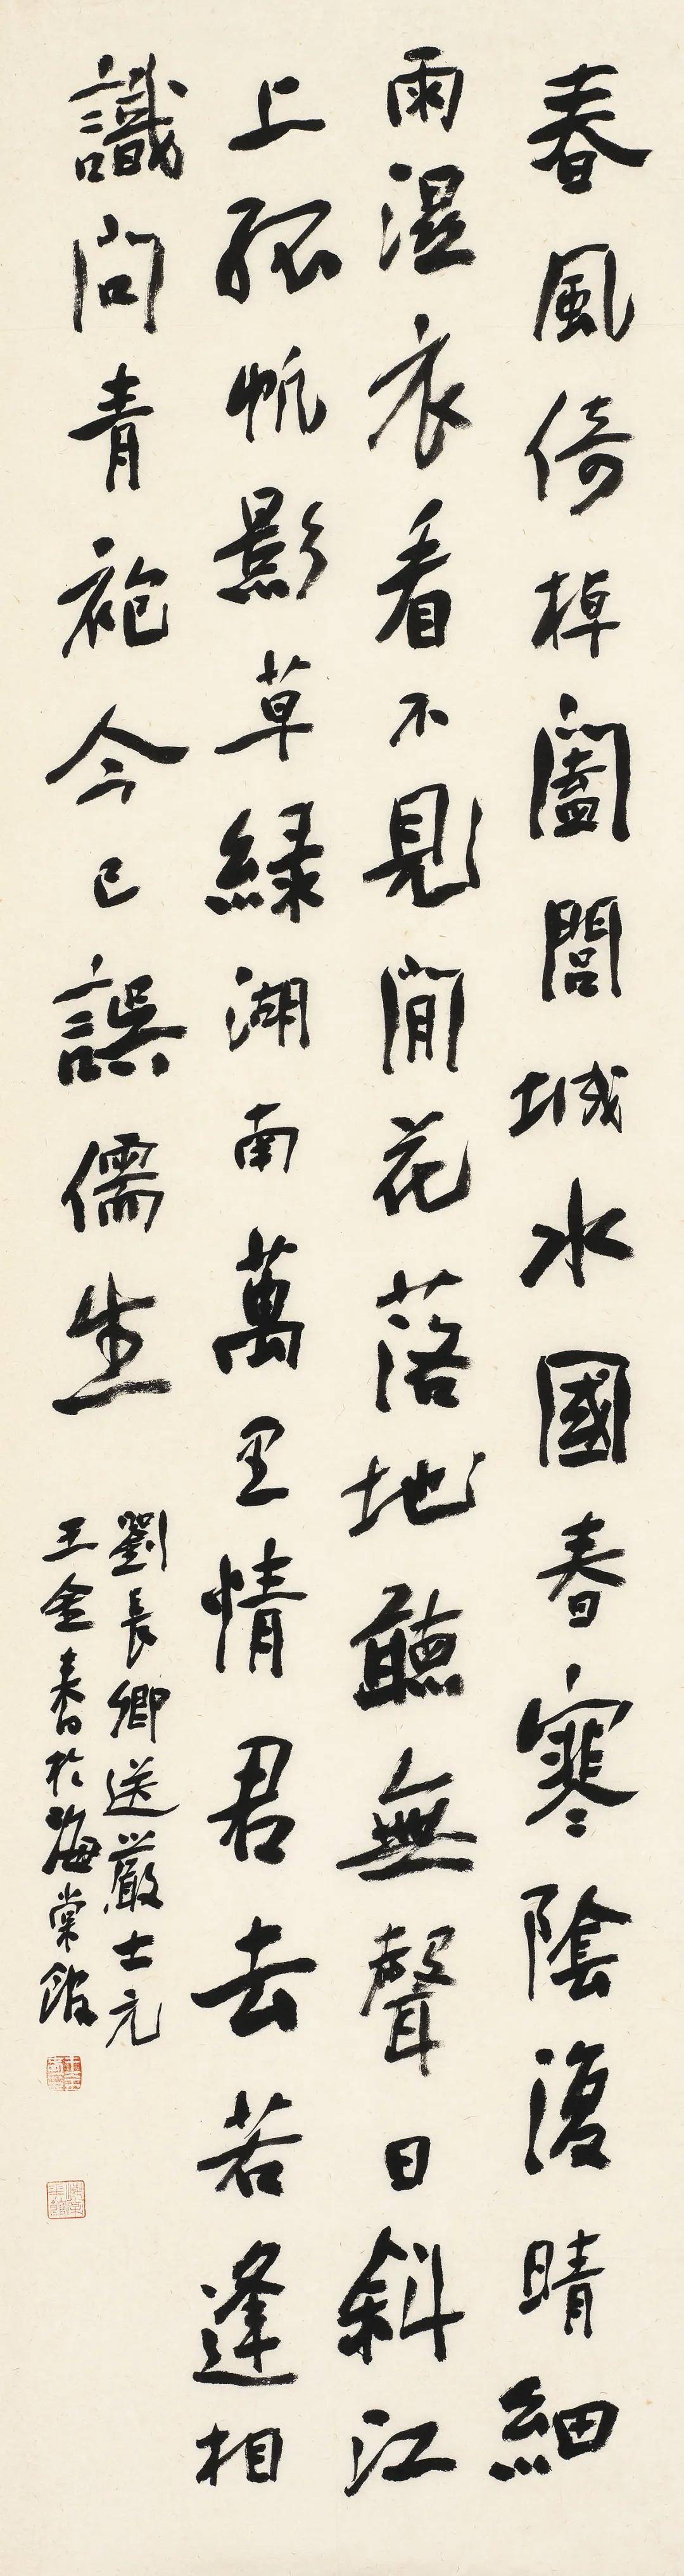 春風倚棹闔閭城水國春寒陰復晴細
雨濕衣看不見閒花落地聽無聲日斜江
上孤帆影草綠湖南萬里情君去若逢相
識問青袍今已誤儒生
劉長卿送嚴士元
王金春書於海棠館